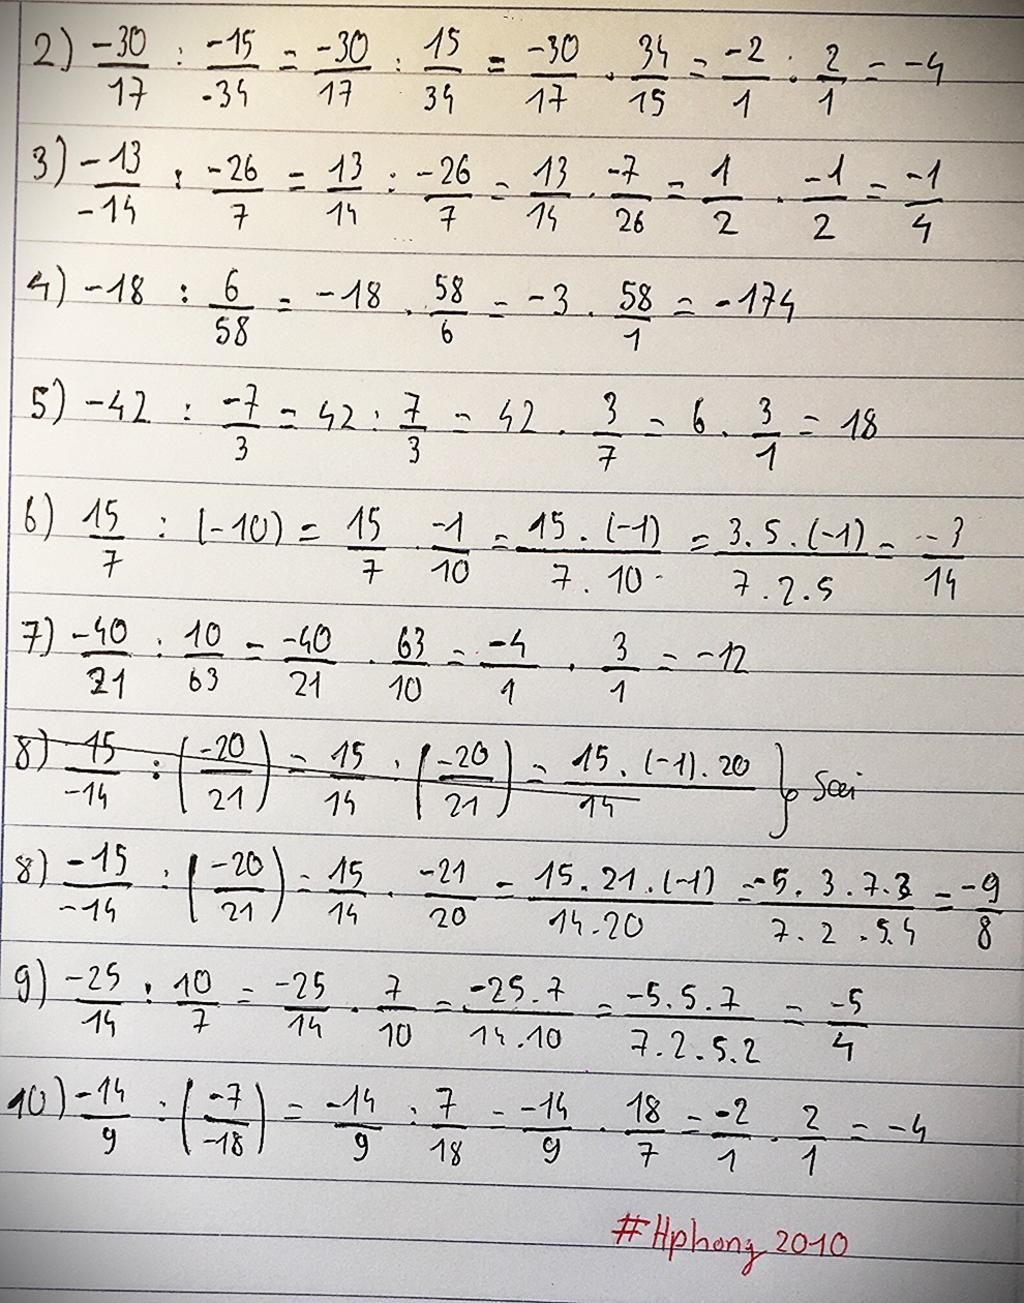 2) -30/17 : -15/-34 = -30/17 : 15/34 = -30/17 . 34/15 = -2/1 . 2/1 = -4
3) -13/-14 : -26/7 = 13/14 : -26/7 = 13/14 . -7/26 = 1/2 . -1/2 = -1/4
4) -18 : 6/58 = -18 . 58/6 = -3 . 58/1 = -174
5) -42 : -7/3 = 42 : 7/3 = 42 . 3/7 = 6 . 3/1 = 18
6) 15/7 : (-10) = 15/7 . -1/10 = 15 . (-1)/7 . 10 = 3 . 5 . (-1)/7 . 2 . 5 = -3/14
7) -40/21 : 10/63 = -40/21 . 63/10 = -4/1 . 3/1 = -12
8) -15/-14 : (-20/21) = 15/14 . (-20/21) = 15 . (-1) . 20/14 } Sai
8) -15/-14 : (-20/21) = 15/14 . -21/20 = 15 . 21 . (-1)/14 . 20 = -5 . 3 . 7 . 3/7 . 2 . 5 . 4 = -9/8
9) -25/14 : 10/7 = -25/14 . 7/10 = -25 . 7/14 . 10 = -5 . 5 . 7/7 . 2 . 5 . 2 = -5/4
10) -14/9 : (-7/-18) = -14/9 : 7/18 = -14/9 . 18/7 = -2/1 . 2/1 = -4
#Hphong 2010